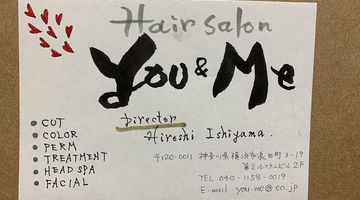 Hair salon
You & Me
Director
Hiroshi Ishiyama.
• CUT
• COLOR
• PERM
• TREATMENT
• HEAD SPA
• FACIAL
〒120-0011 神奈川県横浜市長田町3-19
第2ルフランビル2F
TEL 040-1158-0019
E-mail you.me@co.jp